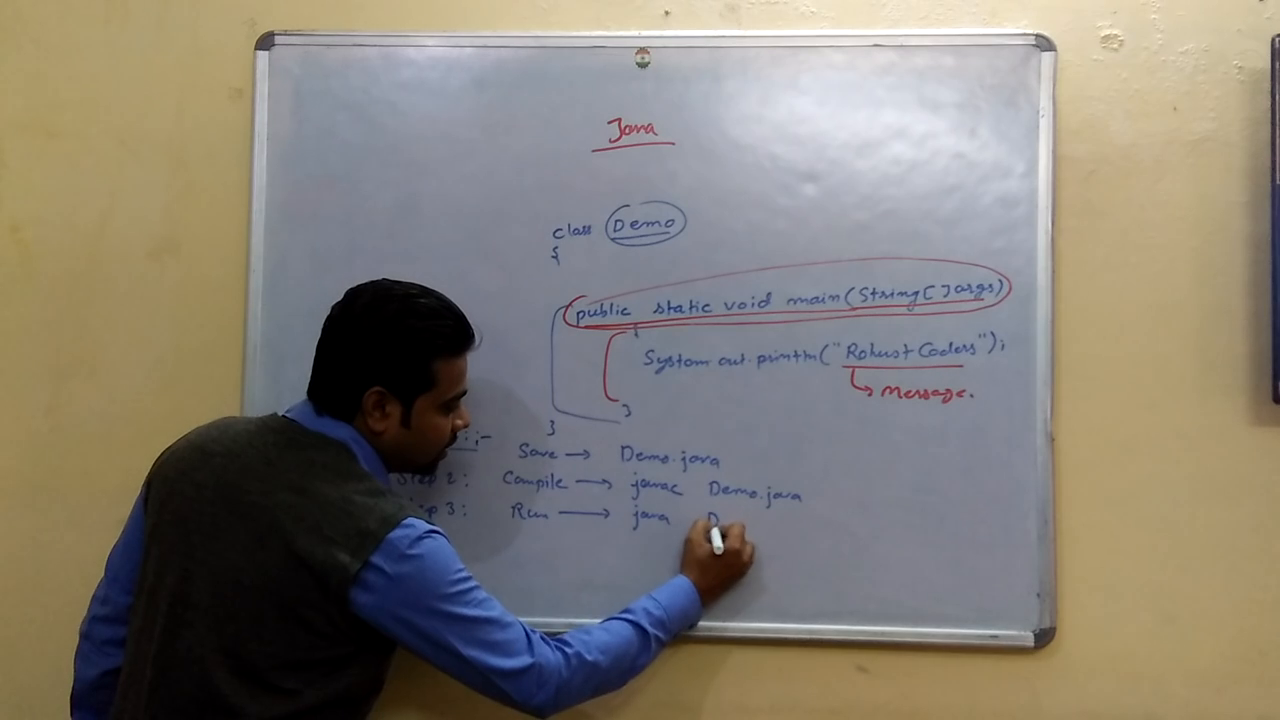 Java
class Demo
{
public static void main(String[]args)
{
System.out.println("Robust Coders");
Message.
}
}
:- Save → Demo.java
Step 2: Compile → javac Demo.java
p 3: Run → java D